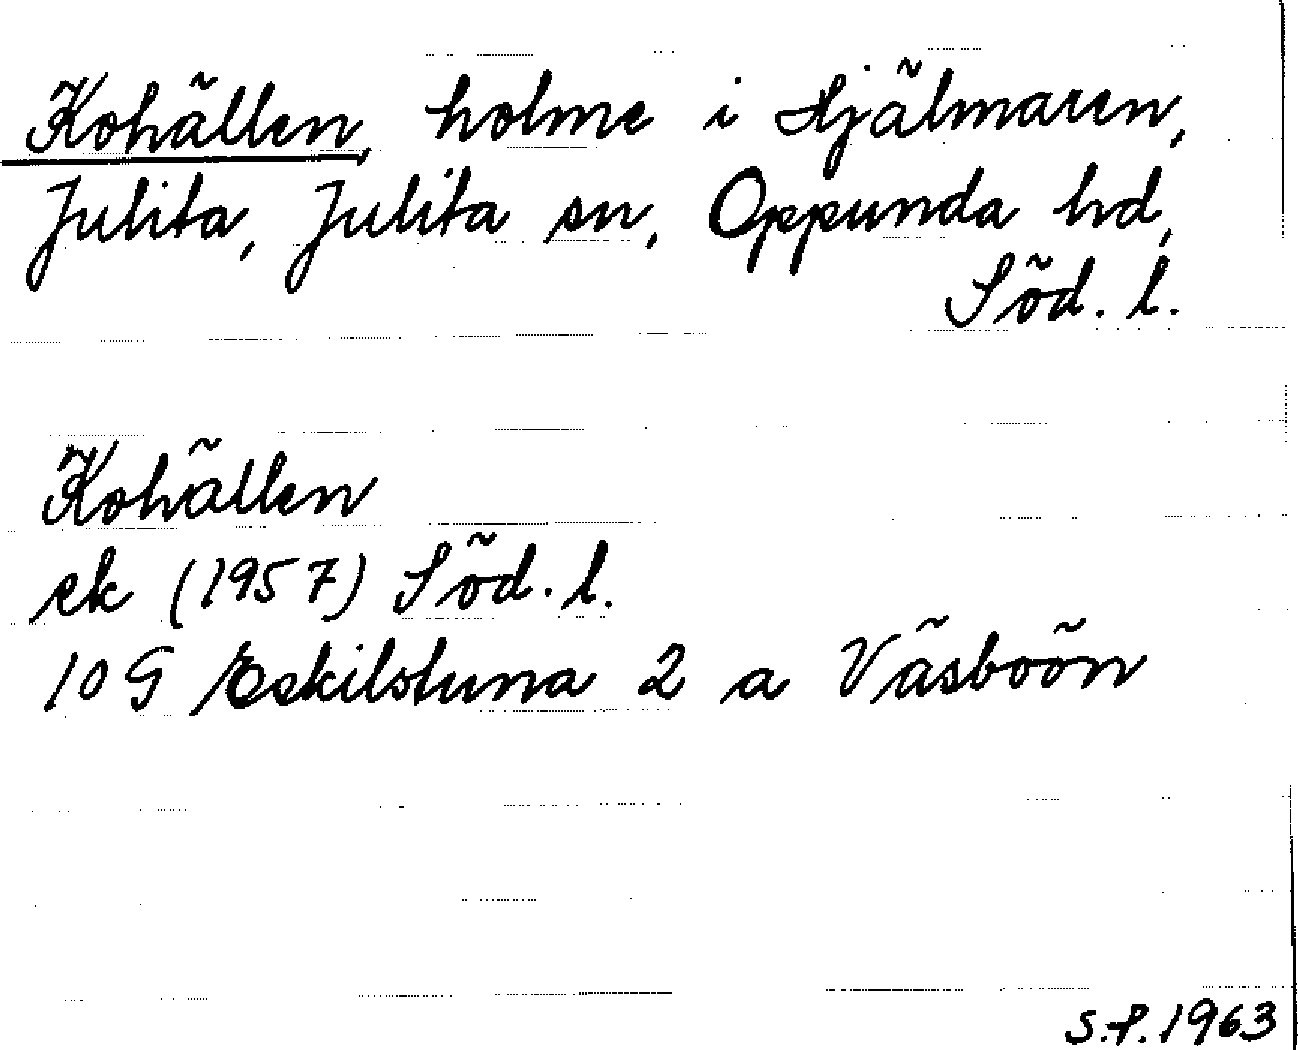 Kohällen, holme i Hjälmaren,
Julita, Julita sn, Oppunda hd,
Söd. l.
Kohällen
ek (1957) Söd. l.
10 G Eskilstuna 2 a Väsboön
S.P. 1963